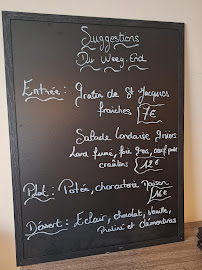 Suggestions
Du Week-End
Entrée : Gratin de St Jacques
fraîches 7€
Salade Landaise
Lard fumé, foie gras, oeuf poché
croûtons 12€
Plat : Potée, charcuterie Maison
16€
Dessert : Eclair, chocolat, vanille,
Praliné et Clémentines